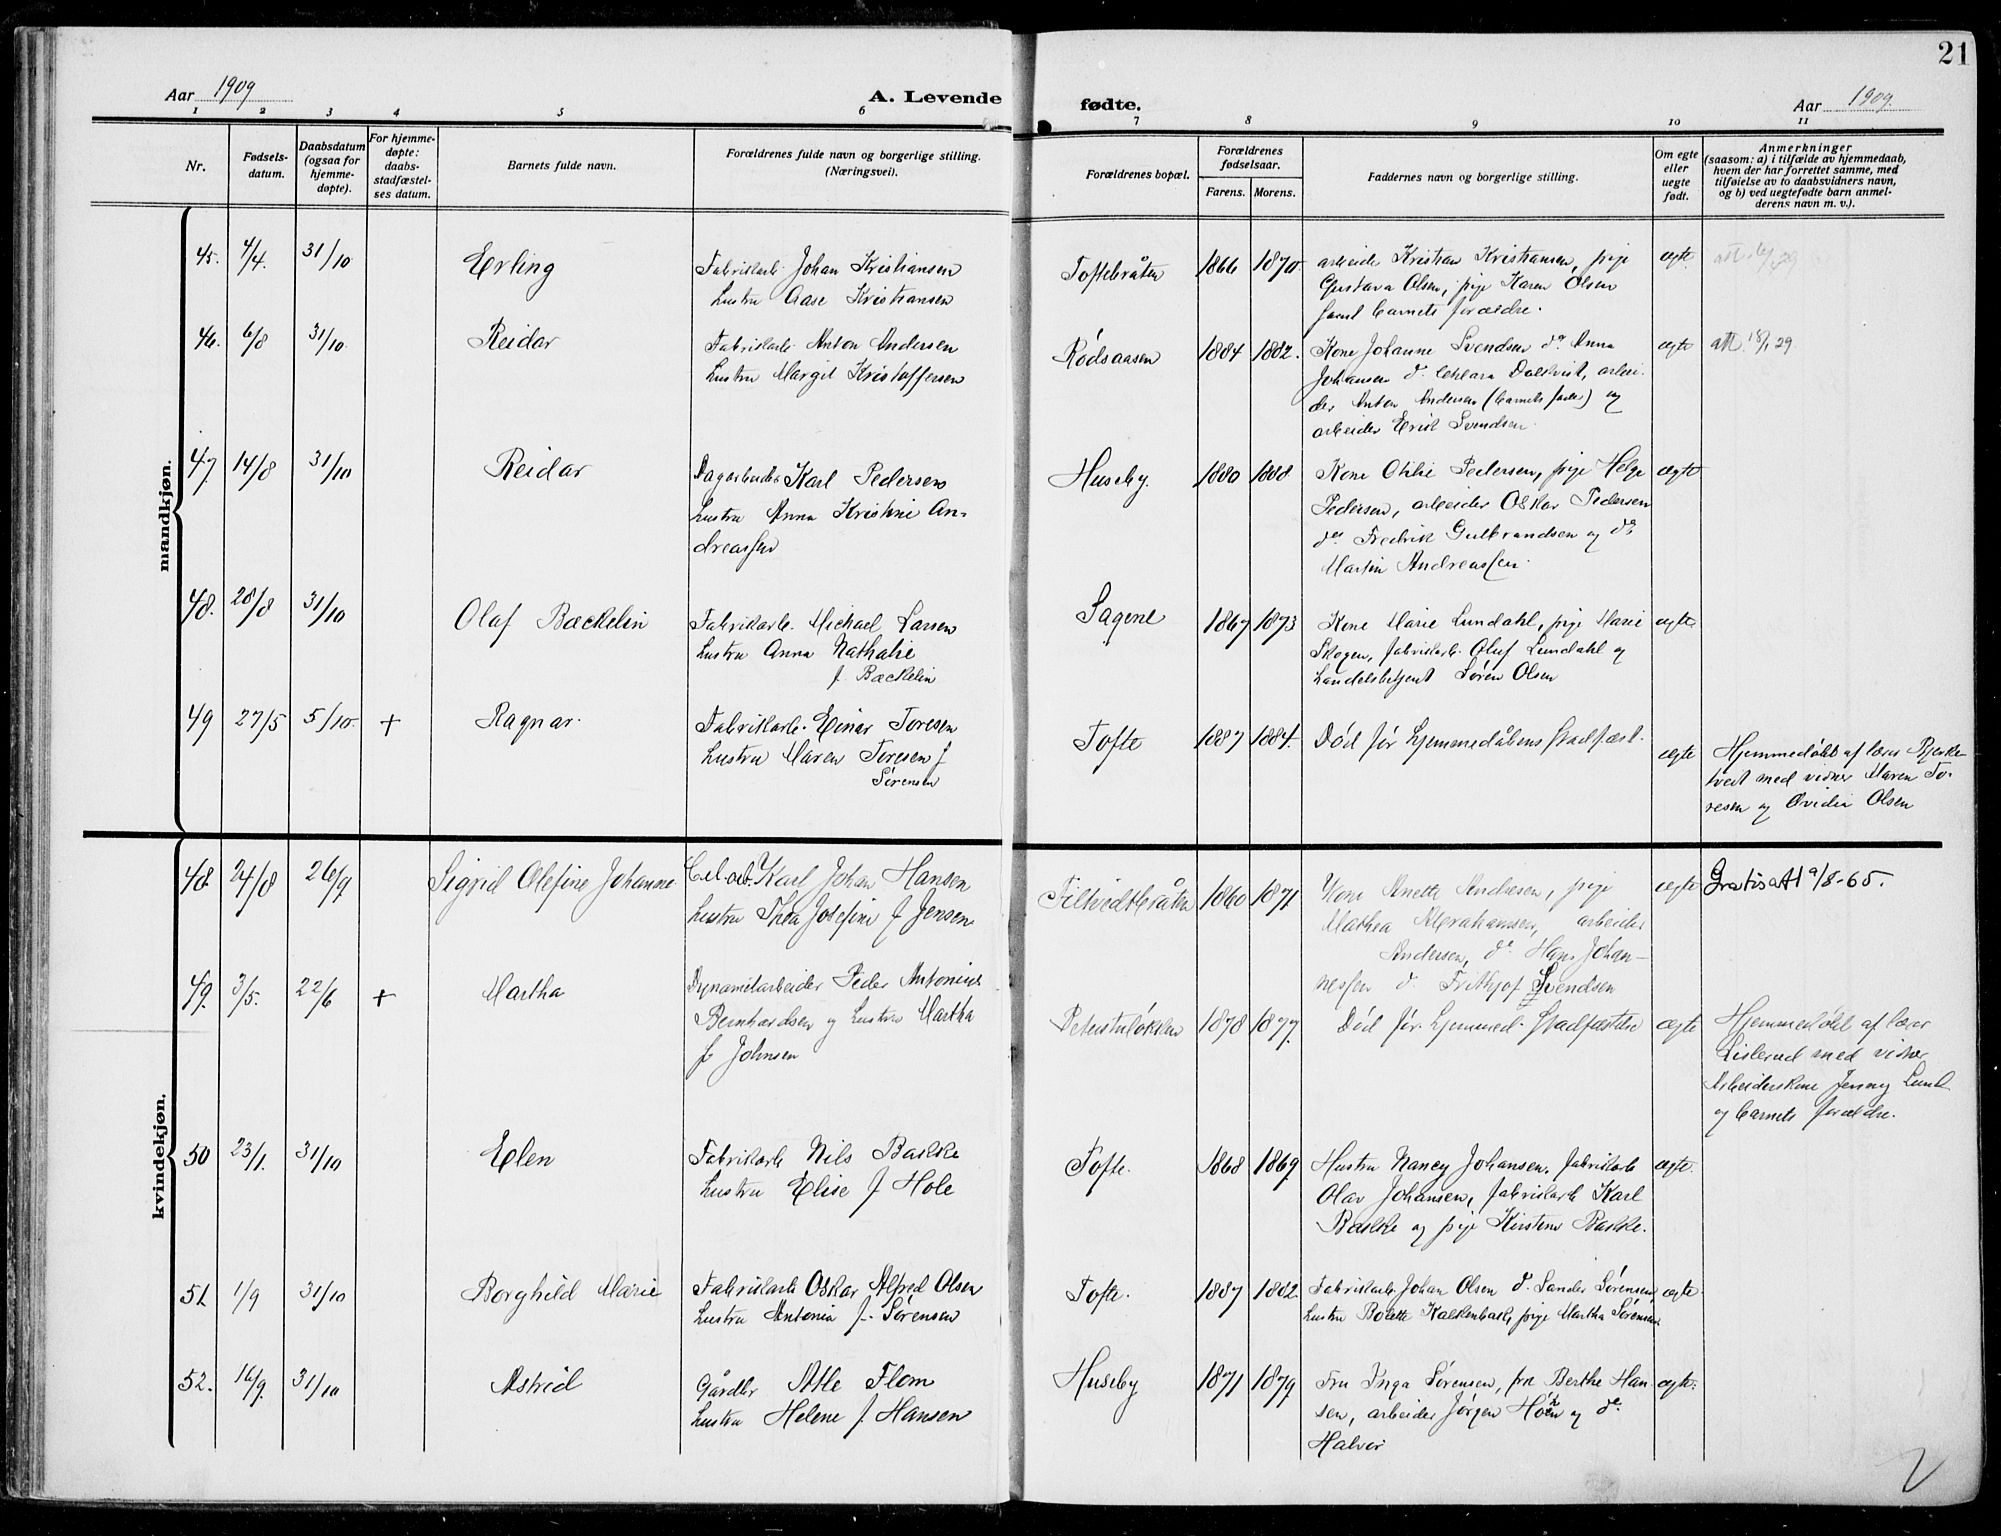 21
Aar 1909
A. Levende
fødte.
Aar 1909.
1 2 3 4 5 6 7 8 9 10 11
Nr.
Fødsels-
datum.
Daabsdatum
(ogsaa for
hjemme-
døpte).
For hjemme-
døpte:
daabs-
stadfæstel-
ses datum.
Barnets fulde navn.
Forældrenes fulde navn og borgerlige stilling.
(Næringsvei).
Forældrenes bopæl.
Forældrenes
fødselsaar.
Farens. Morens.
Faddernes navn og borgerlige stilling.
Om egte
eller
uegte
født.
Anmerkninger
(saasom: a) i tilfælde av hjemmedaab,
hvem der har forrettet samme, med
tilføielse av to daabsvidners navn,
og b) ved uegtefødte barn anmel-
derens navn m. v.).
mandkjøn.
45. 4/4. 31/10 Erling
Fabrikarb. Johan Kristiansen
hustru Aase Kristiansen
Toftebråten 1866 1870.
arbeide Kristian Kristiansen, pige
Gustava Olsen, pige Karen Olsen
samt barnets forældre.
egte
46. 6/8 31/10. Reidar
Fabrikarb. Anton Andersen
hustru Margit Kristoffersen
Rødsaasen 1884 1882.
Kone Johanne Svendsen do Anna
Johansen d. Chlara Dalkvist, arbei-
der Anton Andersen (barnets fader) og
arbeider Erik Svendsen.
egte att. 18/1 29.
47. 14/8 31/10 Reidar
Dagarbeider Karl Pedersen
hustru Anna Kristine An-
dreassen
Huseby. 1880 1888.
Kone Otilie Pedersen, pige Helga
Pedersen, arbeider Oskar Pedersen
do Fredrik Gulbrandsen og do
Martin Andreassen.
egte
48. 28/8 31/10 Olaf Bäckelin
Fabrikarb. Michael Larsen
hustru Anna Nathalie
f. Bäckelin
Sagene 1867 1873
Kone Marie Lundahl, pige Marie
Skogen, fabrikarb. Oluf Lundahl og
handelsbetjent Søren Olsen
egte
49 27/5 5/10. + Ragnar.
Fabrikarb. Einar Toresen
hustru Maren Toresen f
Sørensen
Tofte 1887 1884.
Død før hjemmedåbens stadfæst.
egte
Hjemmedøbt af lærer Bjerke-
tvedt med vidner Maren To-
resen og Ovidia Olsen
kvindekjøn.
48. 24/8 26/9 Sigrid Olefine Johanne
Cel.arb. Karl Johan Hansen
hustru Thea Josefine f Jensen
Filtvedtbråten 1860 1871
Kone Anette Andresen, pige
Mathea Abrahamsen, arbeider
Andersen, do Hans Johan-
nessen d. Frithjof Svendsen
egte Gratisatt 9/8-65.
49. 3/5. 22/6 + Martha
Dynamitarbeider Peder Antonius
Bernhardsen og hustru Martha
f. Johnsen
Petersløkken 1878 1877.
Død før hjemmed. stadfæstelse
egte
Hjemmedøbt af lærer
Lislerud med vidner
Arbeiderskone Jenny Lund
og barnets forældre.
50 23/1. 31/10 Elen
Fabrikarb Nils Bakke
hustru Elise f Hole
Tofte. 1868 1869.
Hustru Nancy Johansen, fabrikarb
Olav Johansen, fabrikarb Karl
Bakke og pige Kirstene Bakke.
egte.
51. 1/9 31/10 Borghild Marie
Fabrikarb Oskar Alfred Olsen
hustru Antonia f. Sørensen
Tofte. 1887 1882.
Fabrikarb Johan Olsen d. Sander Sørensen
hustru Bolette Kalkenbakk pige Martha Sørensen
egte
52. 16/9. 31/10 Astrid
Gårdbr Atle Flom
hustru Helene f Hansen
Huseby 1871 1879.
Fru Inga Sørensen, frk Berthe Han-
sen, arbeider Jørgen Hoen og do.
Halvor
egte.